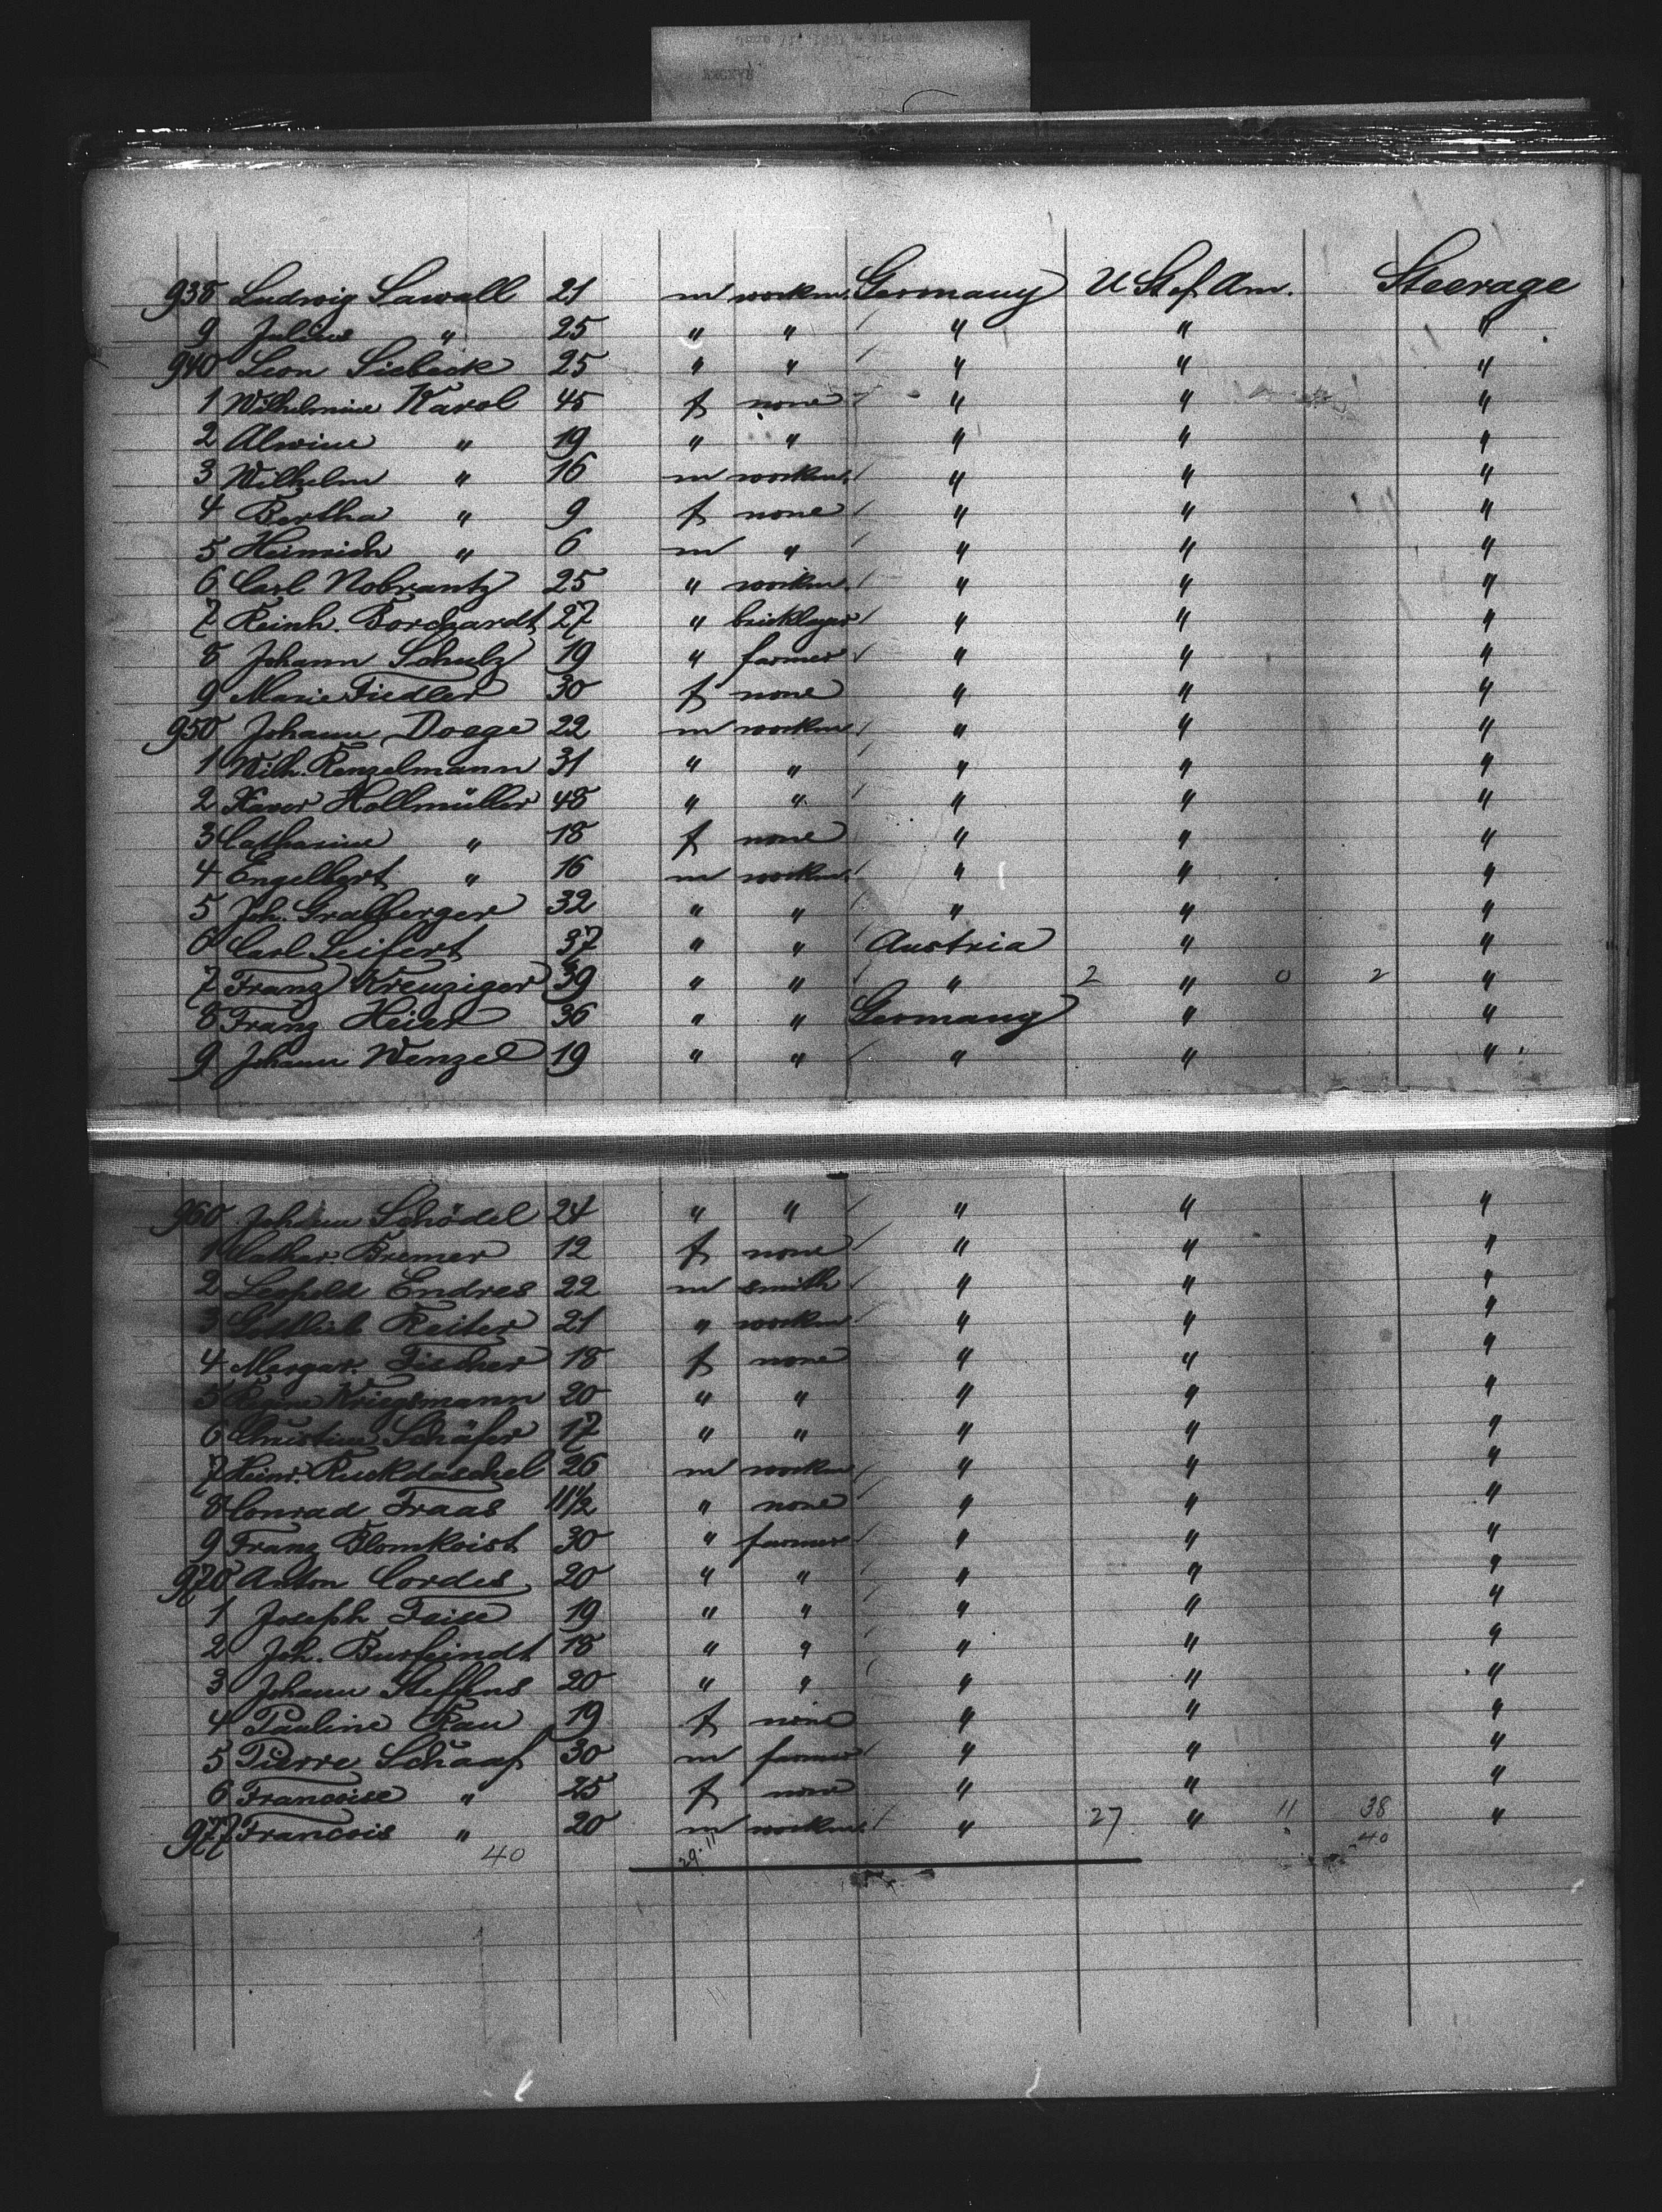 938 Ludwig Sawall 21 m workm. Germany U St of Am. Steerage
9 Julius " 25 " " " " "
940 Leon Siebeck 25 " " " " "
1 Wilhelmine Karol 45 f none " " "
2 Alwine " 19 " " " " "
3 Wilhelm " 16 m workm. " " "
4 Bertha " 9 f none " " "
5 Heinrich " 6 m " " " "
6 Carl Nobrantz 25 " workm. " " "
7 Reinh. Borchardt 27 " bricklayer " " "
8 Johann Schulz 19 " farmer " " "
9 Marie Fiedler 30 f none " " "
950 Johann Doege 22 m workm. " " "
1 Wilh. Renzelmann 31 " " " " "
2 Xaver Hollmüller 48 " " " " "
3 Catharine " 18 f none " " "
4 Engelbert " 16 m workm. " " "
5 Joh. Gralberger 32 " " " " "
6 Carl Seifert 37 " " Austria " "
7 Franz Kreuziger 39 " " " 2 " 0 2 "
8 Franz Heier 36 " " Germany " "
9 Johann Wenzel 19 " " " " "
960 Johann Schödel 24 " " " " "
1 Cathar. Bremer 12 f none " " "
2 Leopold Endres 22 m smith " " "
3 Gottlieb Reiter 21 " workm " " "
4 Margar. Fischer 18 f none " " "
5 Kriegsmann 20 " " " " "
6 Christine Schäfer 17 " " " " "
7 Heinr. Ruckdäschel 26 m workm " " "
8 Conrad Fraas 11½ " none " " "
9 Franz Blomkvist 30 " farmer " " "
970 Anton Cordes 20 " " " " "
1 Joseph Feise 19 " " " " "
2 Joh. Burfeindt 18 " " " " "
3 Johann Steffens 20 " " " " "
4 Pauline Rau 19 f none " " "
5 Pierre Schaaf 30 m farmer " " "
6 Francoise " 25 f none " " "
977 Francois " 20 m workm. " 27 " 11 38 "
40 29.11 40